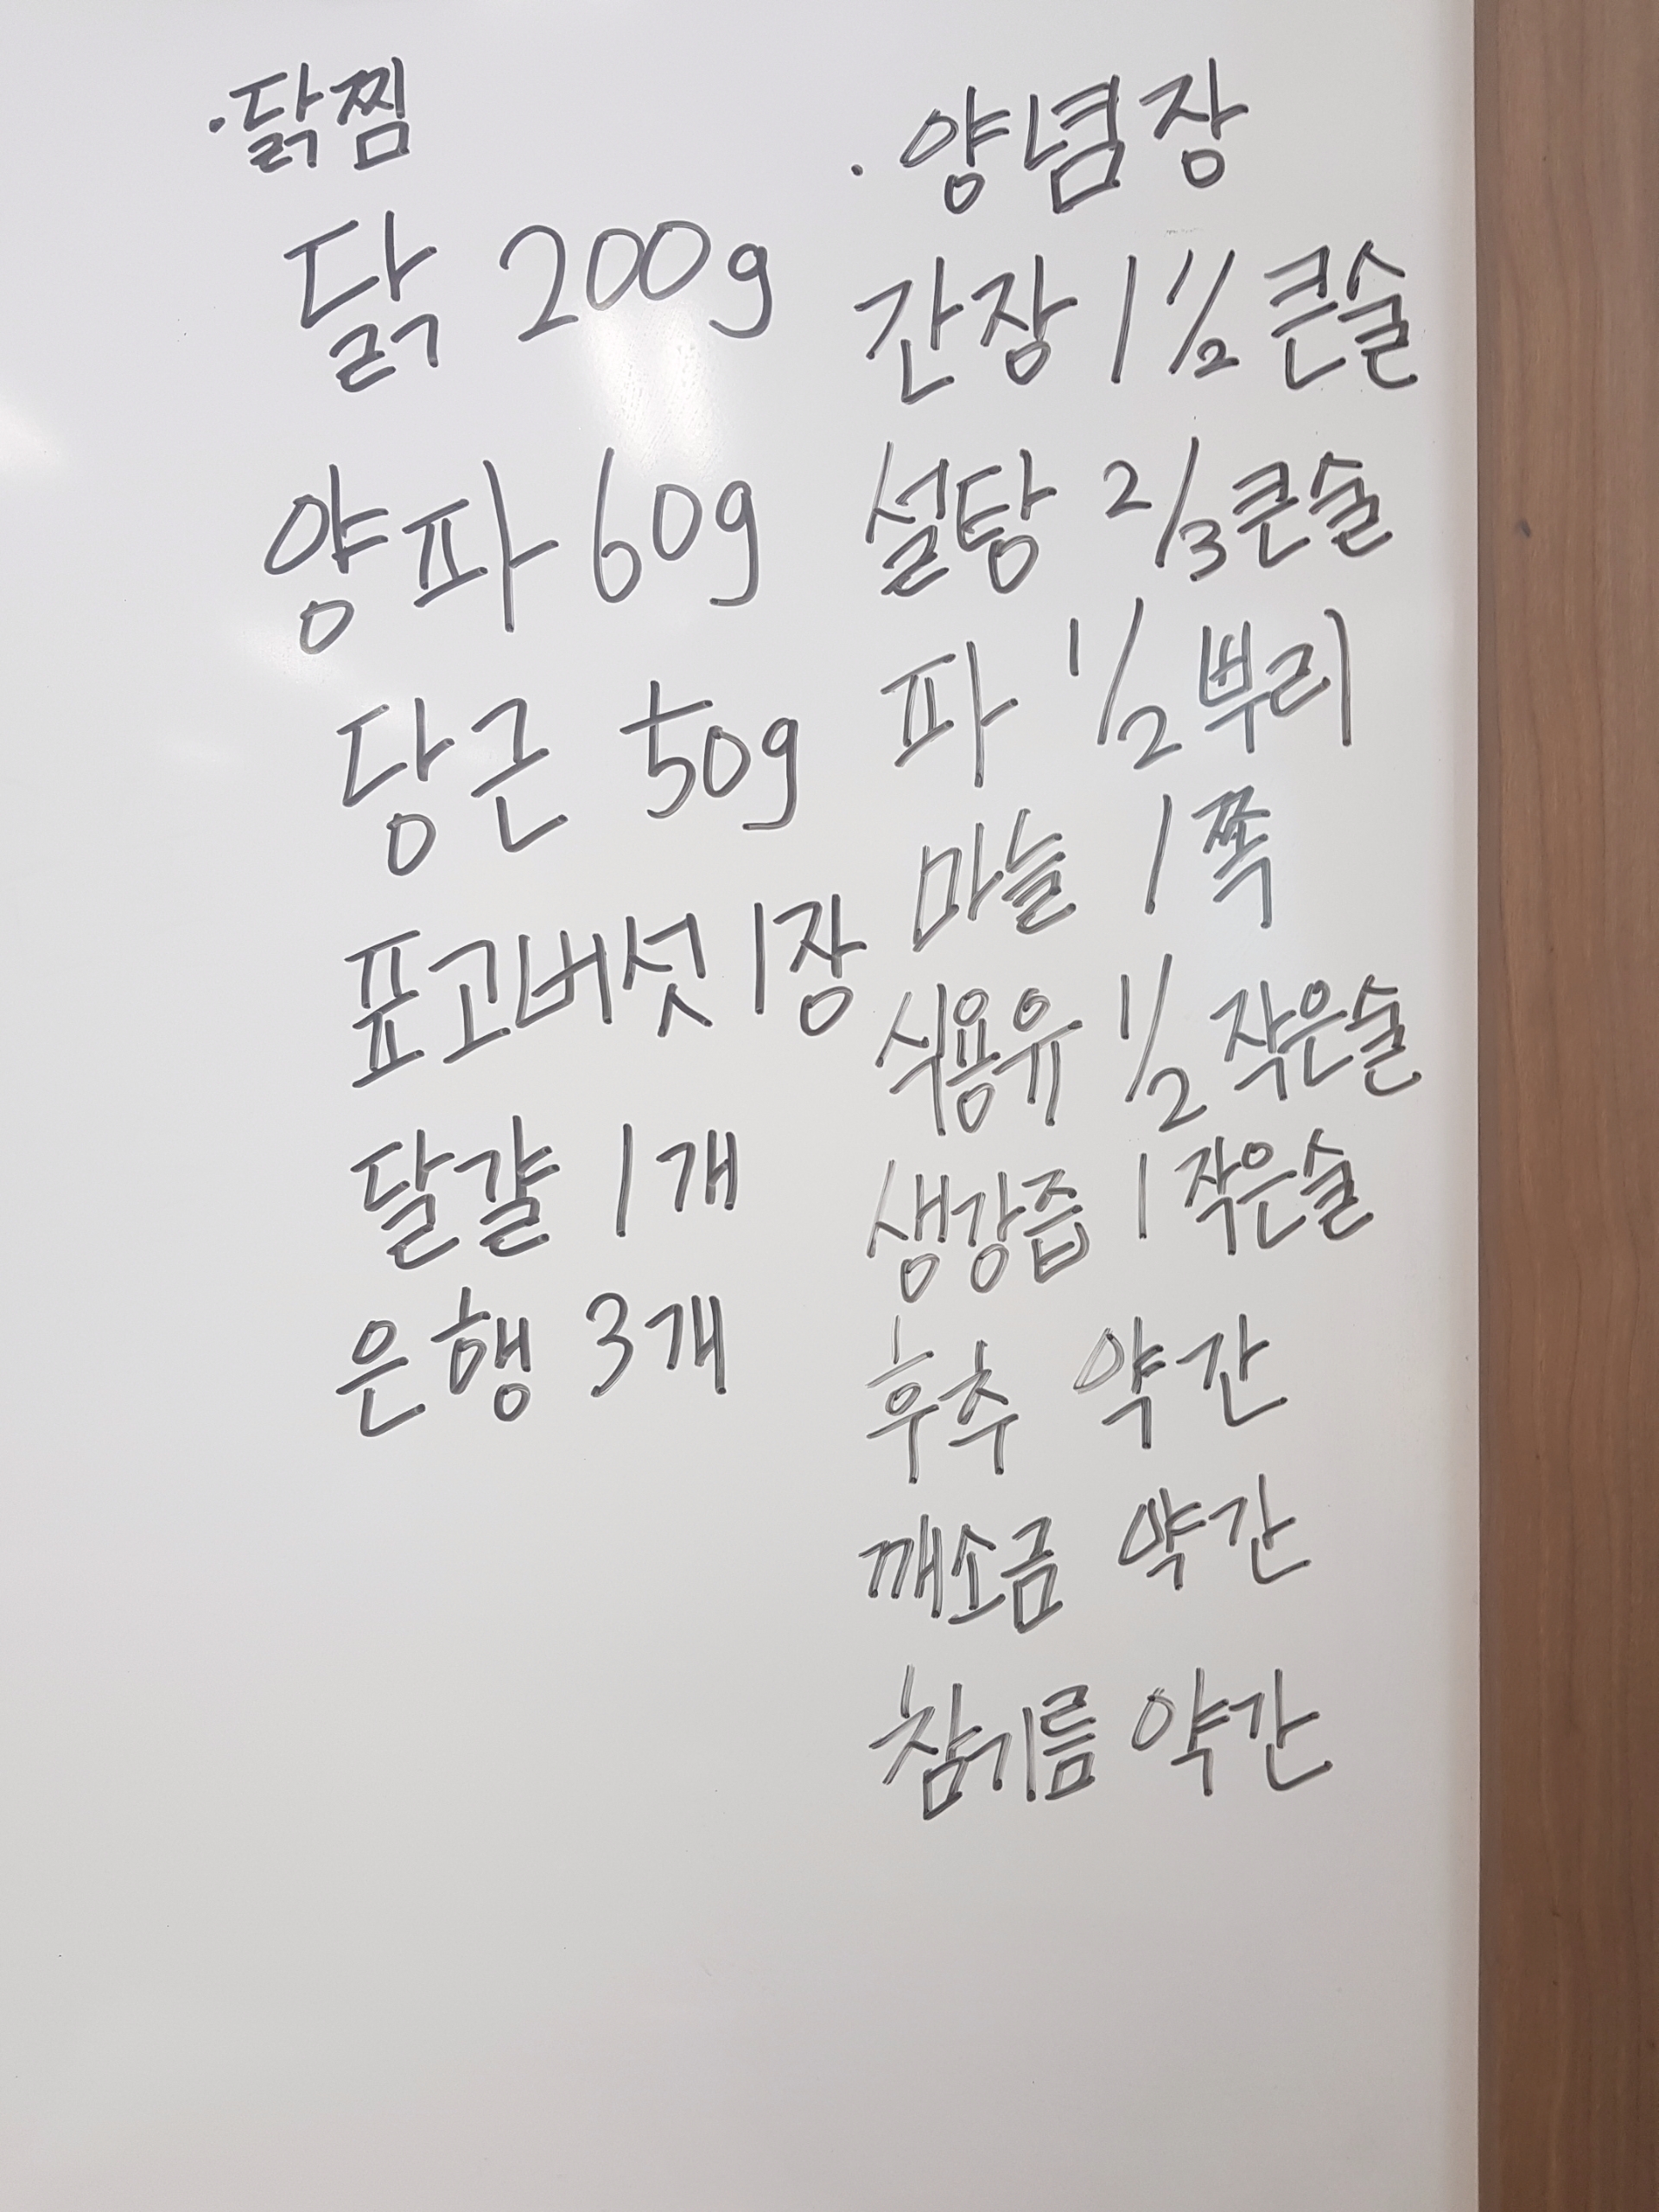 ·닭찜
닭 200g
양파 60g
당근 50g
표고버섯 1장
달걀 1개
은행 3개
·양념장
간장 1 1/2 큰술
설탕 2/3 큰술
파 1/2 뿌리
마늘 1쪽
식용유 1/2 작은술
생강즙 1 작은술
후추 약간
깨소금 약간
참기름 약간